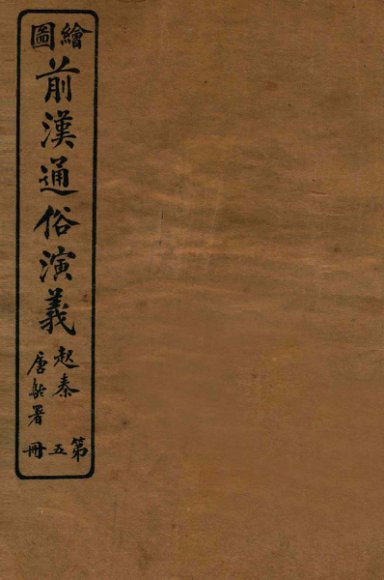 繪圖
前漢通俗演義
起秦
唐駝署
第五冊